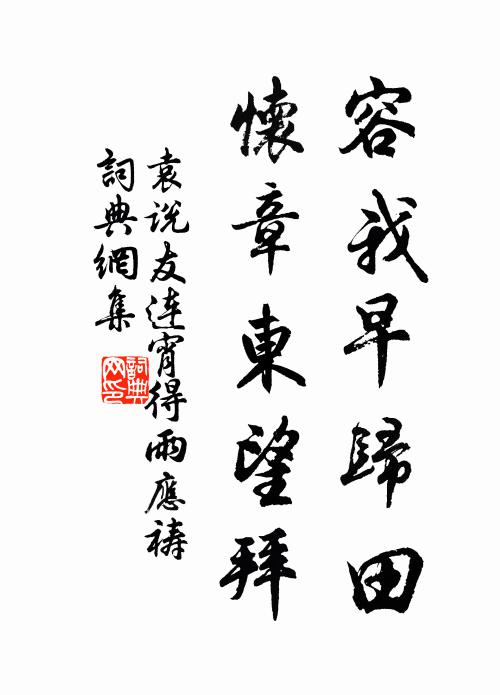 容我早歸田
懷章東望拜
袁说友连宵得雨應祷
詞典網集
詞典網印